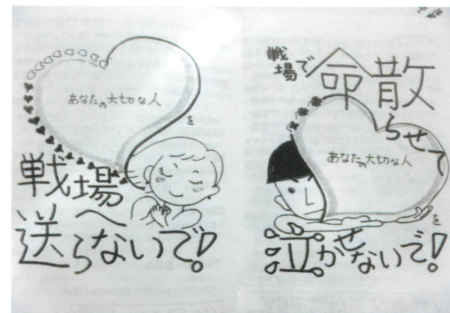 あなたの大切な人
を
戦場へ
送らないで!
戦場で
命散
らせて
あなたの大切な人
を
泣かせないで!